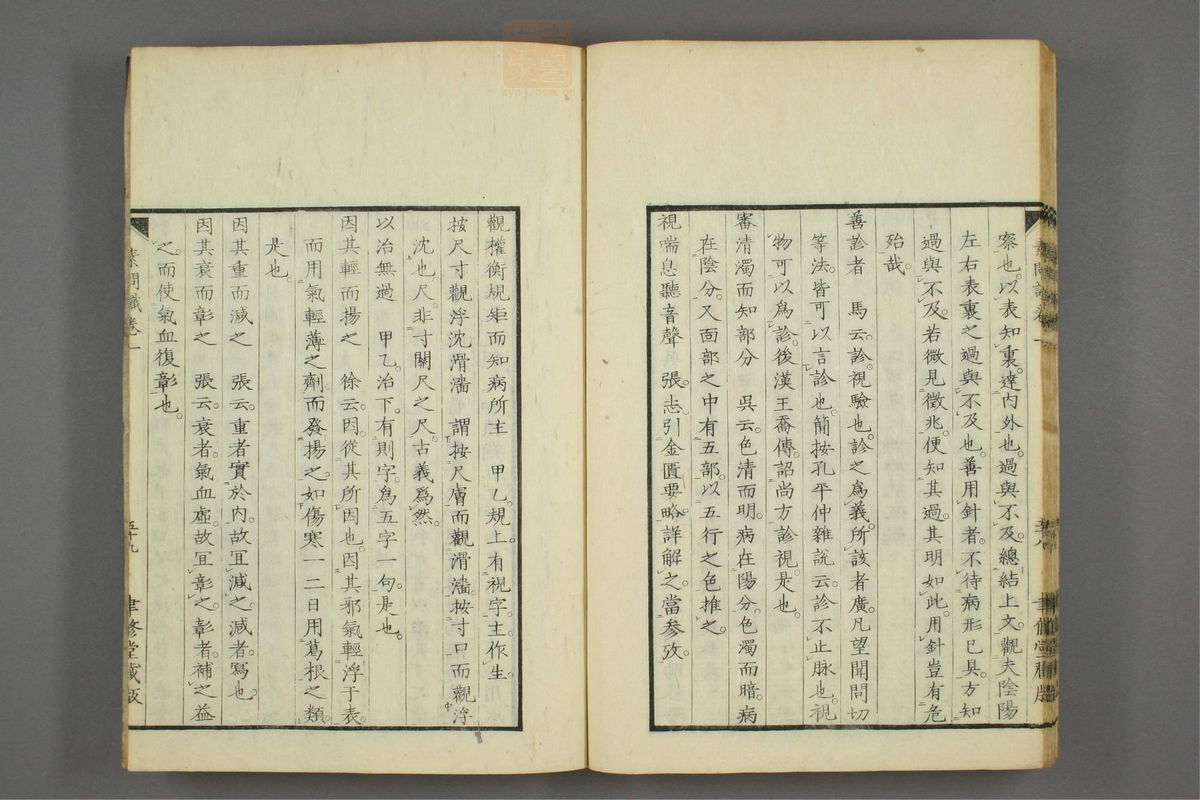 察也。以表知裏。達内外也。過與不及。總結上文。觀夫陰陽
左右表裏之過與不及也。善用針者。不待病形已具。方知
過與不及。若微見徵兆。便知其過。其明如此。用針豈有危
殆哉。
善診者　馬云。診。視驗也。診之爲義。所該者廣。凡望聞問切
等法。皆可以言診也。簡按孔平仲雜說云。診不止脉也。視
物可以爲診。後漢王喬傳。詔尚方診視。是也。
審清濁而知部分　吳云。色清而明。病在陽分。色濁而暗。病
在陰分。又面部之中有五部。以五行之色推之。
視喘息聽音聲　張志。引金匱要略詳解之。當參攷。
素問識卷一
五十九
聿修堂藏板
觀權衡規矩而知病所主　甲乙。規上。有視字。主。作生。
按尺寸觀浮沈滑濇　謂按尺膚而觀滑濇。按寸口而觀浮
沈也。尺。非寸關尺之尺。古義爲然。
以治無過　甲乙。治下。有則字。爲五字一句。是也。
因其輕而揚之　徐云。因。從其所因也。因其邪氣輕浮于表。
而用氣輕薄之劑。而發揚之。如傷寒一二日用葛根之類。
是也。
因其重而減之　張云。重者實於内。故宜減之。減者。寫也。
因其衰而彰之　張云。衰者。氣血虛。故宜彰之。彰者。補之益
之。而使氣血復彰也。